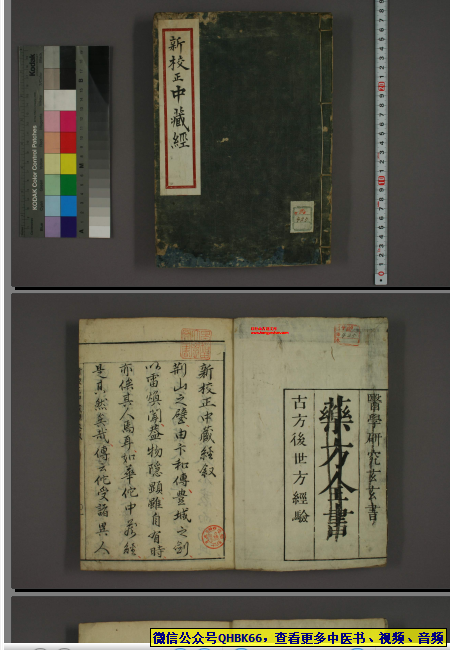 新校正中藏經
KODAK Color Control Patches
Kodak
醫學研究玄玄書
藥方全書
古方後世方經驗
新校正中藏經叙
荆山之璧由卞和傳豊城之劍
以雷煥聞蓋物隱顕雖自有時
亦俟其人焉耳如華佗中藏經
是其然矣哉傳云佗受諸異人
微信公众号QHBK66，查看更多中医书、视频、音频